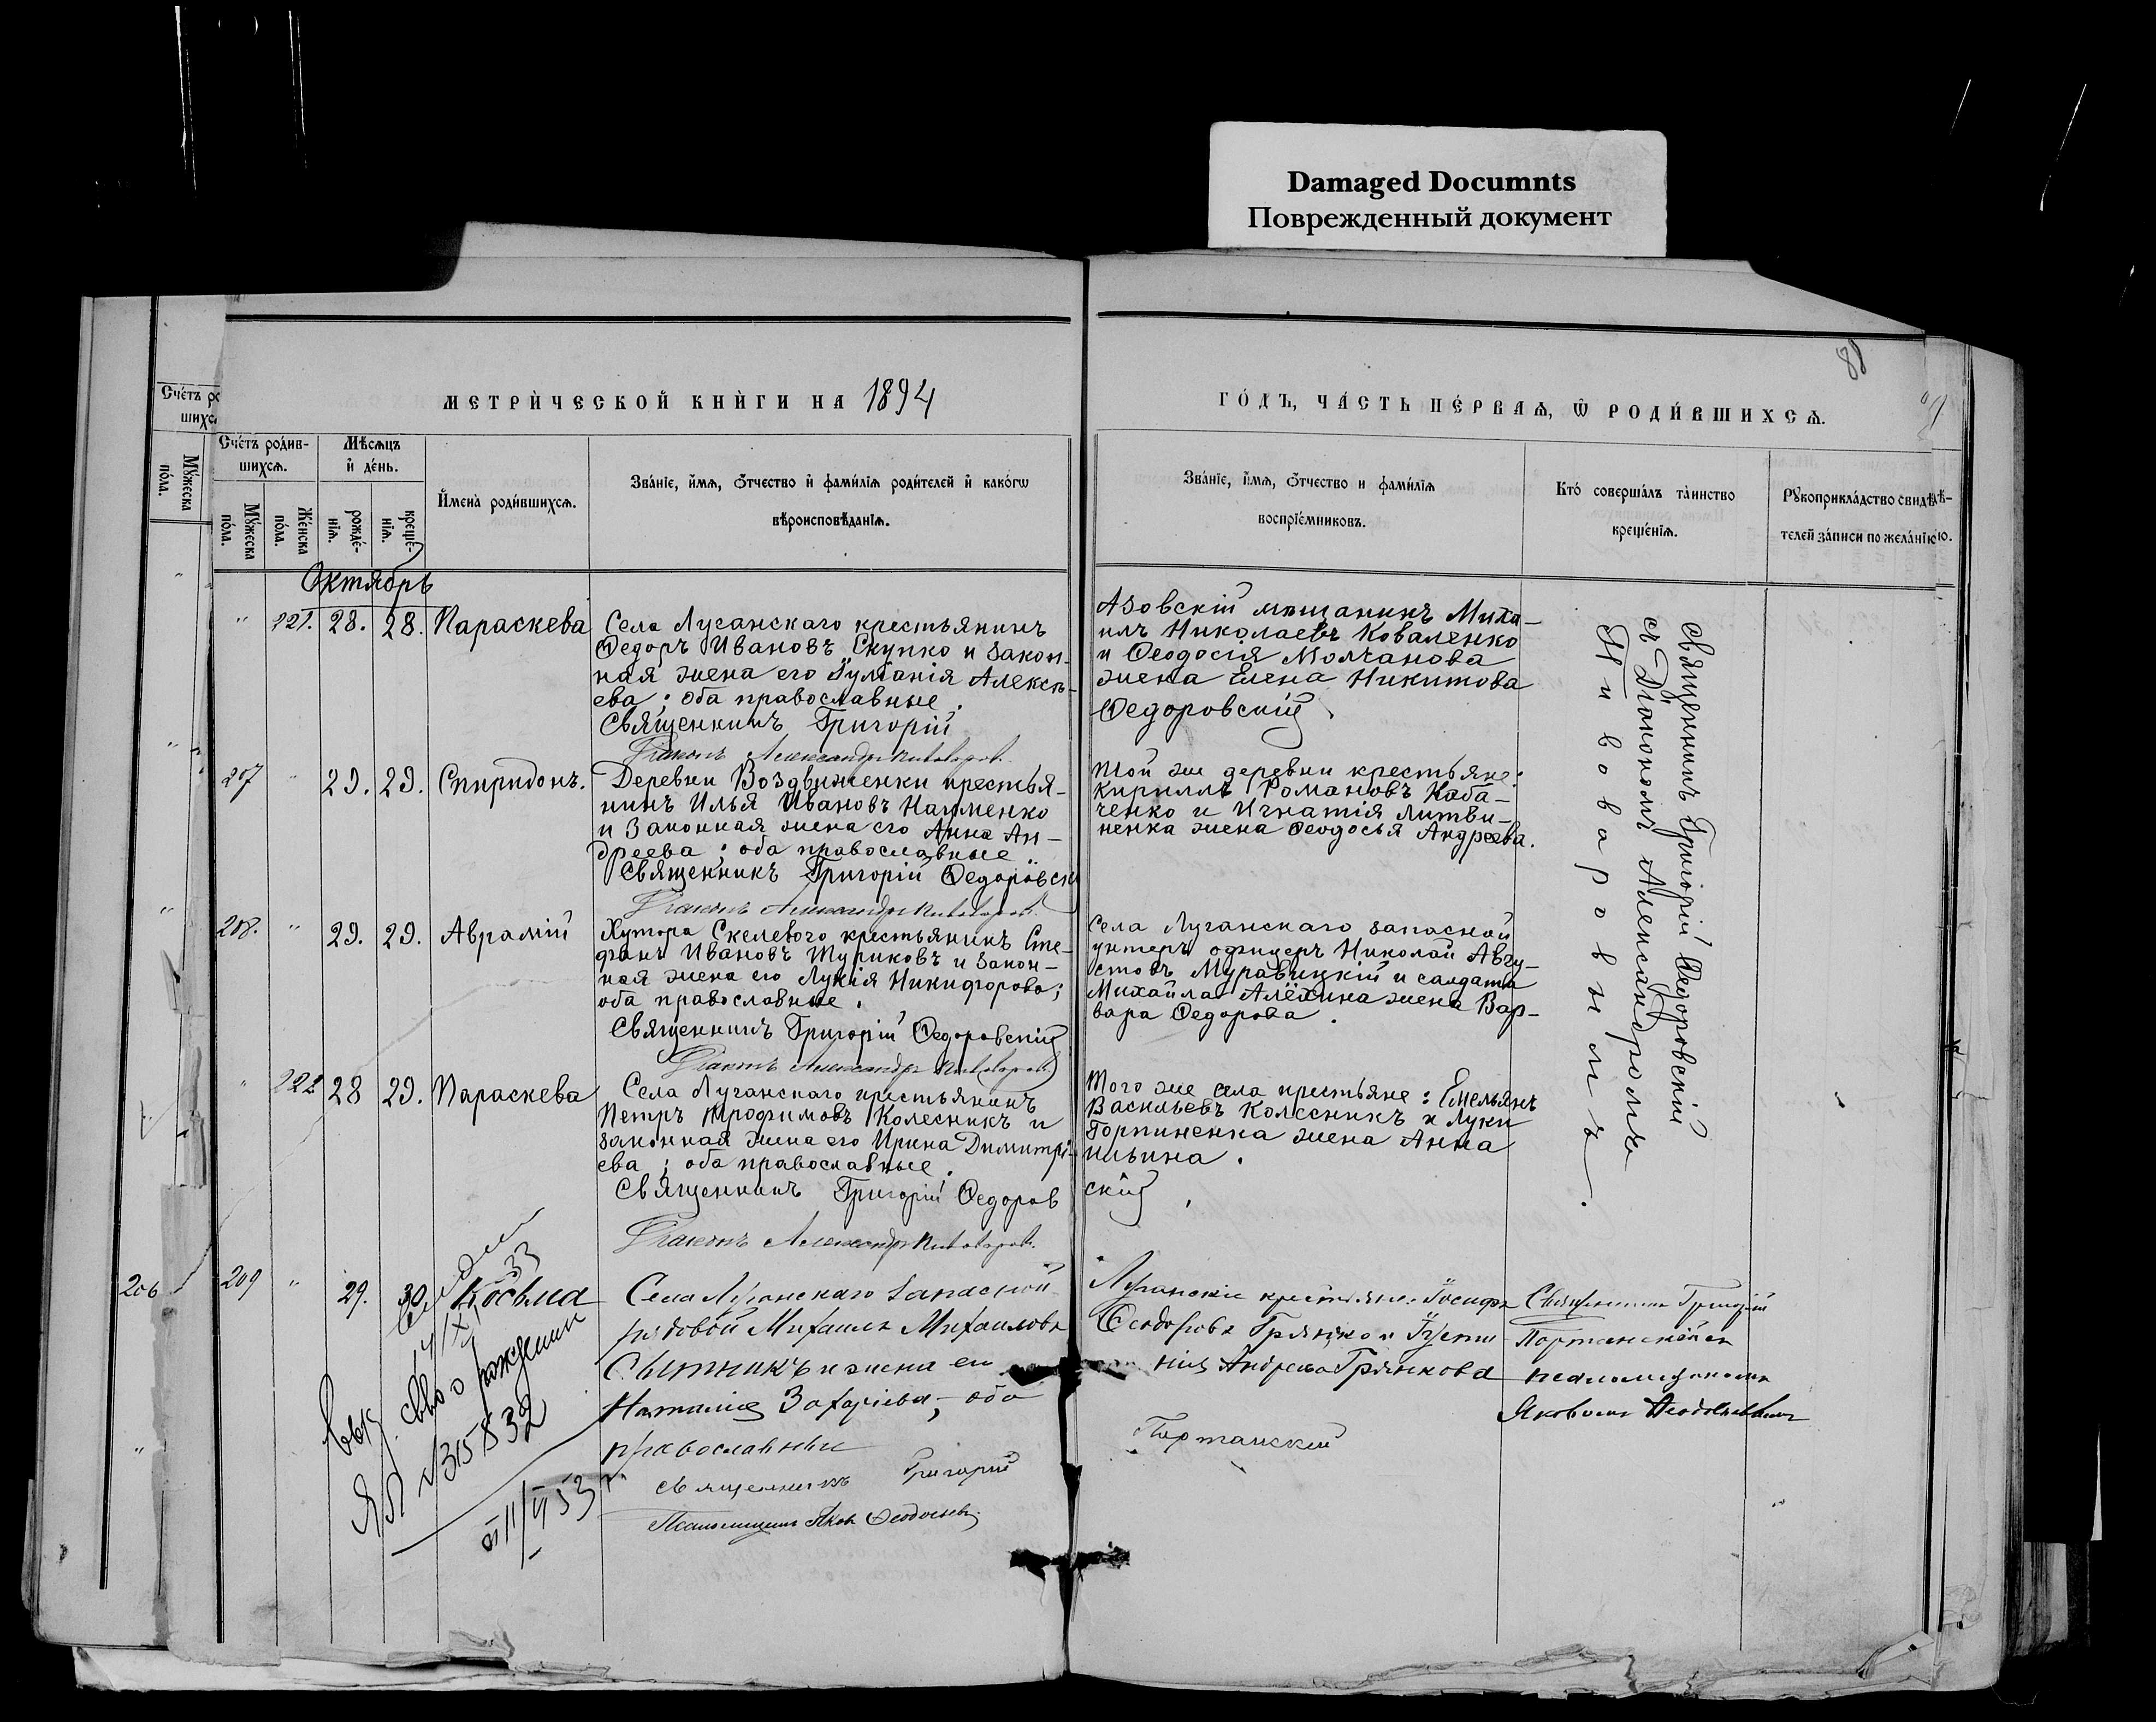 Damaged Documnts
Поврежденный документ
88
МЕТРИ́ЧЕСКОЙ КНИ́ГИ НА 1894
ГО́ДЪ, ЧА́СТЬ ПЕ́РВАѦ, Ѿ РОДИ́ВШИХСѦ.
Сче́тъ роди́в-
шихсѧ.
Мꙋ́жеска
по́ла.
Же́нска
по́ла.
Мѣсѧцъ
и де́нь.
рожде́-
нїѧ.
креще́-
нїѧ.
И҆мена̀ роди́вшихсѧ.
Зва́нїе, и҆́мѧ, ѻ҆́тчество и҆ фами́лїѧ роди́телей и҆ како́гѡ
вѣроисповѣ́данїѧ.
Зва́нїе, и҆́мѧ, ѻ҆́тчество и фами́лїѧ
воспрїе́мниковъ.
Кто̀ соверша́лъ та́инство
креще́нїѧ.
Рꙋкоприкла́дство свидѣ́-
телей за́писи по жела́нїю.
Октябрь
" 221. 28. 28. Параскева
Села Луганскаго крестьянинъ
Ѳедоръ Ивановъ Скупко и закон-
ная жена его Іулианія Алексѣ-
ева; оба православные.
Священникъ Григорій
Діаконъ Александръ Пивоваровъ
Азовскій мѣщанинъ Миха-
илъ Николаевъ Коваленко
и Ѳеодосія Молчанова
жена Елена Никитова
Ѳедоровскій
Священникъ Григорій Ѳедоровскій
съ Діакономъ Александромъ
Пивоваровымъ.
207 " 29. 29. Спиридонъ.
Деревни Воздвиженки крестья-
нинъ Илья Ивановъ Науменко
и законная жена его Анна Ан-
дреева; оба православные
Священникъ Григорій Ѳедоровскі
Діаконъ Александръ Пивоваровъ
Той же деревни крестьяне:
Кириллъ Романовъ Каба-
ченко и Игнатія Литви-
ненка жена Ѳеодосья Андреева.
208. " 29. 29. Аврамій
Хутора Скелевого крестьянинъ Сте-
фанъ Ивановъ Туриковъ и закон-
ная жена его Лукія Никифорова;
оба православные.
Священникъ Григорій Ѳедоровскій
Діаконъ Александръ Пивоваровъ
Села Луганскаго запасной
унтеръ офицеръ Николай Авгу-
стовъ Муравицкій и солдата
Михаила Алёхина жена Вар-
вара Ѳедорова.
" 222 28 29. Параскева
Села Луганскаго крестьянинъ
Петръ Трофимовъ Колесникъ и
законная жена его Ирина Димитрі-
ева; оба православные.
Священникъ Григорій Ѳедоров
Діаконъ Александръ Пивоваровъ
Того же села крестьяне: Емельянъ
Васильевъ Колесникъ и Луки
Горпиненка жена Анна
Ильина.
скій
206
209 " 29. 30. Косьма
Села Луганскаго запасной
рядовой Михаилъ Михаиловъ
Сытникъ и жена его
Наталія Захаріева, оба
православные
Священникъ Григорій
Псаломщикъ Яковъ Ѳеодосьевъ
Луганскіе крестьяне: Іосифъ
Ѳеодоровъ Грянко и Іусти-
нія Андреева Грянкова
Портанскій
Священникъ Григорій
Портанскій съ
псаломщикомъ
Яковомъ
33
14/XI
выд. св-во о рождении
ЯЛ № 315832
от 11/VI 53 г.